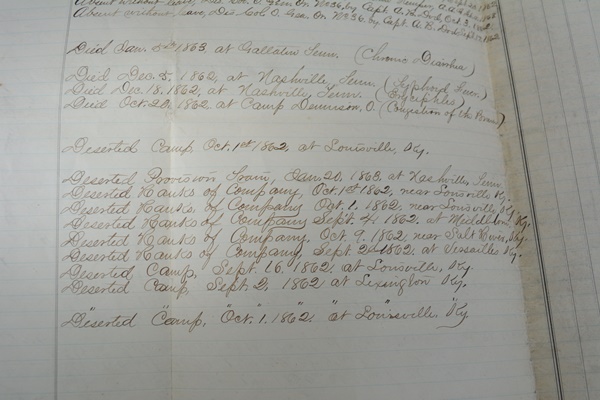 Absent without leave, Des. Col. O. Gen. Or. No 36, by Capt. A. B. Dod, Oct. 3, 1862
Absent without leave, Des. Col. O. Gen. Or. No 36, by Capt. A. B. Dod Sept 10, 1862
Died Jan. 5th 1863, at Gallatin Tenn. (Chronic Diarrhea)
Died Dec. 5, 1862, at Nashville, Tenn. (Typhoid Fever.)
Died Dec. 18, 1862, at Nashville, Tenn. (Erysipelas)
Died Oct. 20, 1862 at Camp Dennison, O. (Congestion of the Brain)
Deserted Camp Oct. 1st 1862, at Louisville, Ky.
Deserted Provision Train, Jan. 20, 1863, at Nashville, Tenn.
Deserted Ranks of Company, Oct 1st 1862, near Louisville Ky.
Deserted Ranks of Company Oct. 1, 1862, near Louisville, Ky.
Deserted Ranks of Company Sept. 4, 1862, at Ky.
Deserted Ranks of Company, Oct. 9, 1862, near Salt River, Ky.
Deserted Ranks of Company, Sept. 2, 1862, at Versailles Ky.
Deserted Camp, Sept. 16, 1862, at Louisville, Ky.
Deserted Camp, Sept. 2, 1862 at Lexington Ky.
Deserted Camp, Oct. 1. 1862. at Louisville, Ky